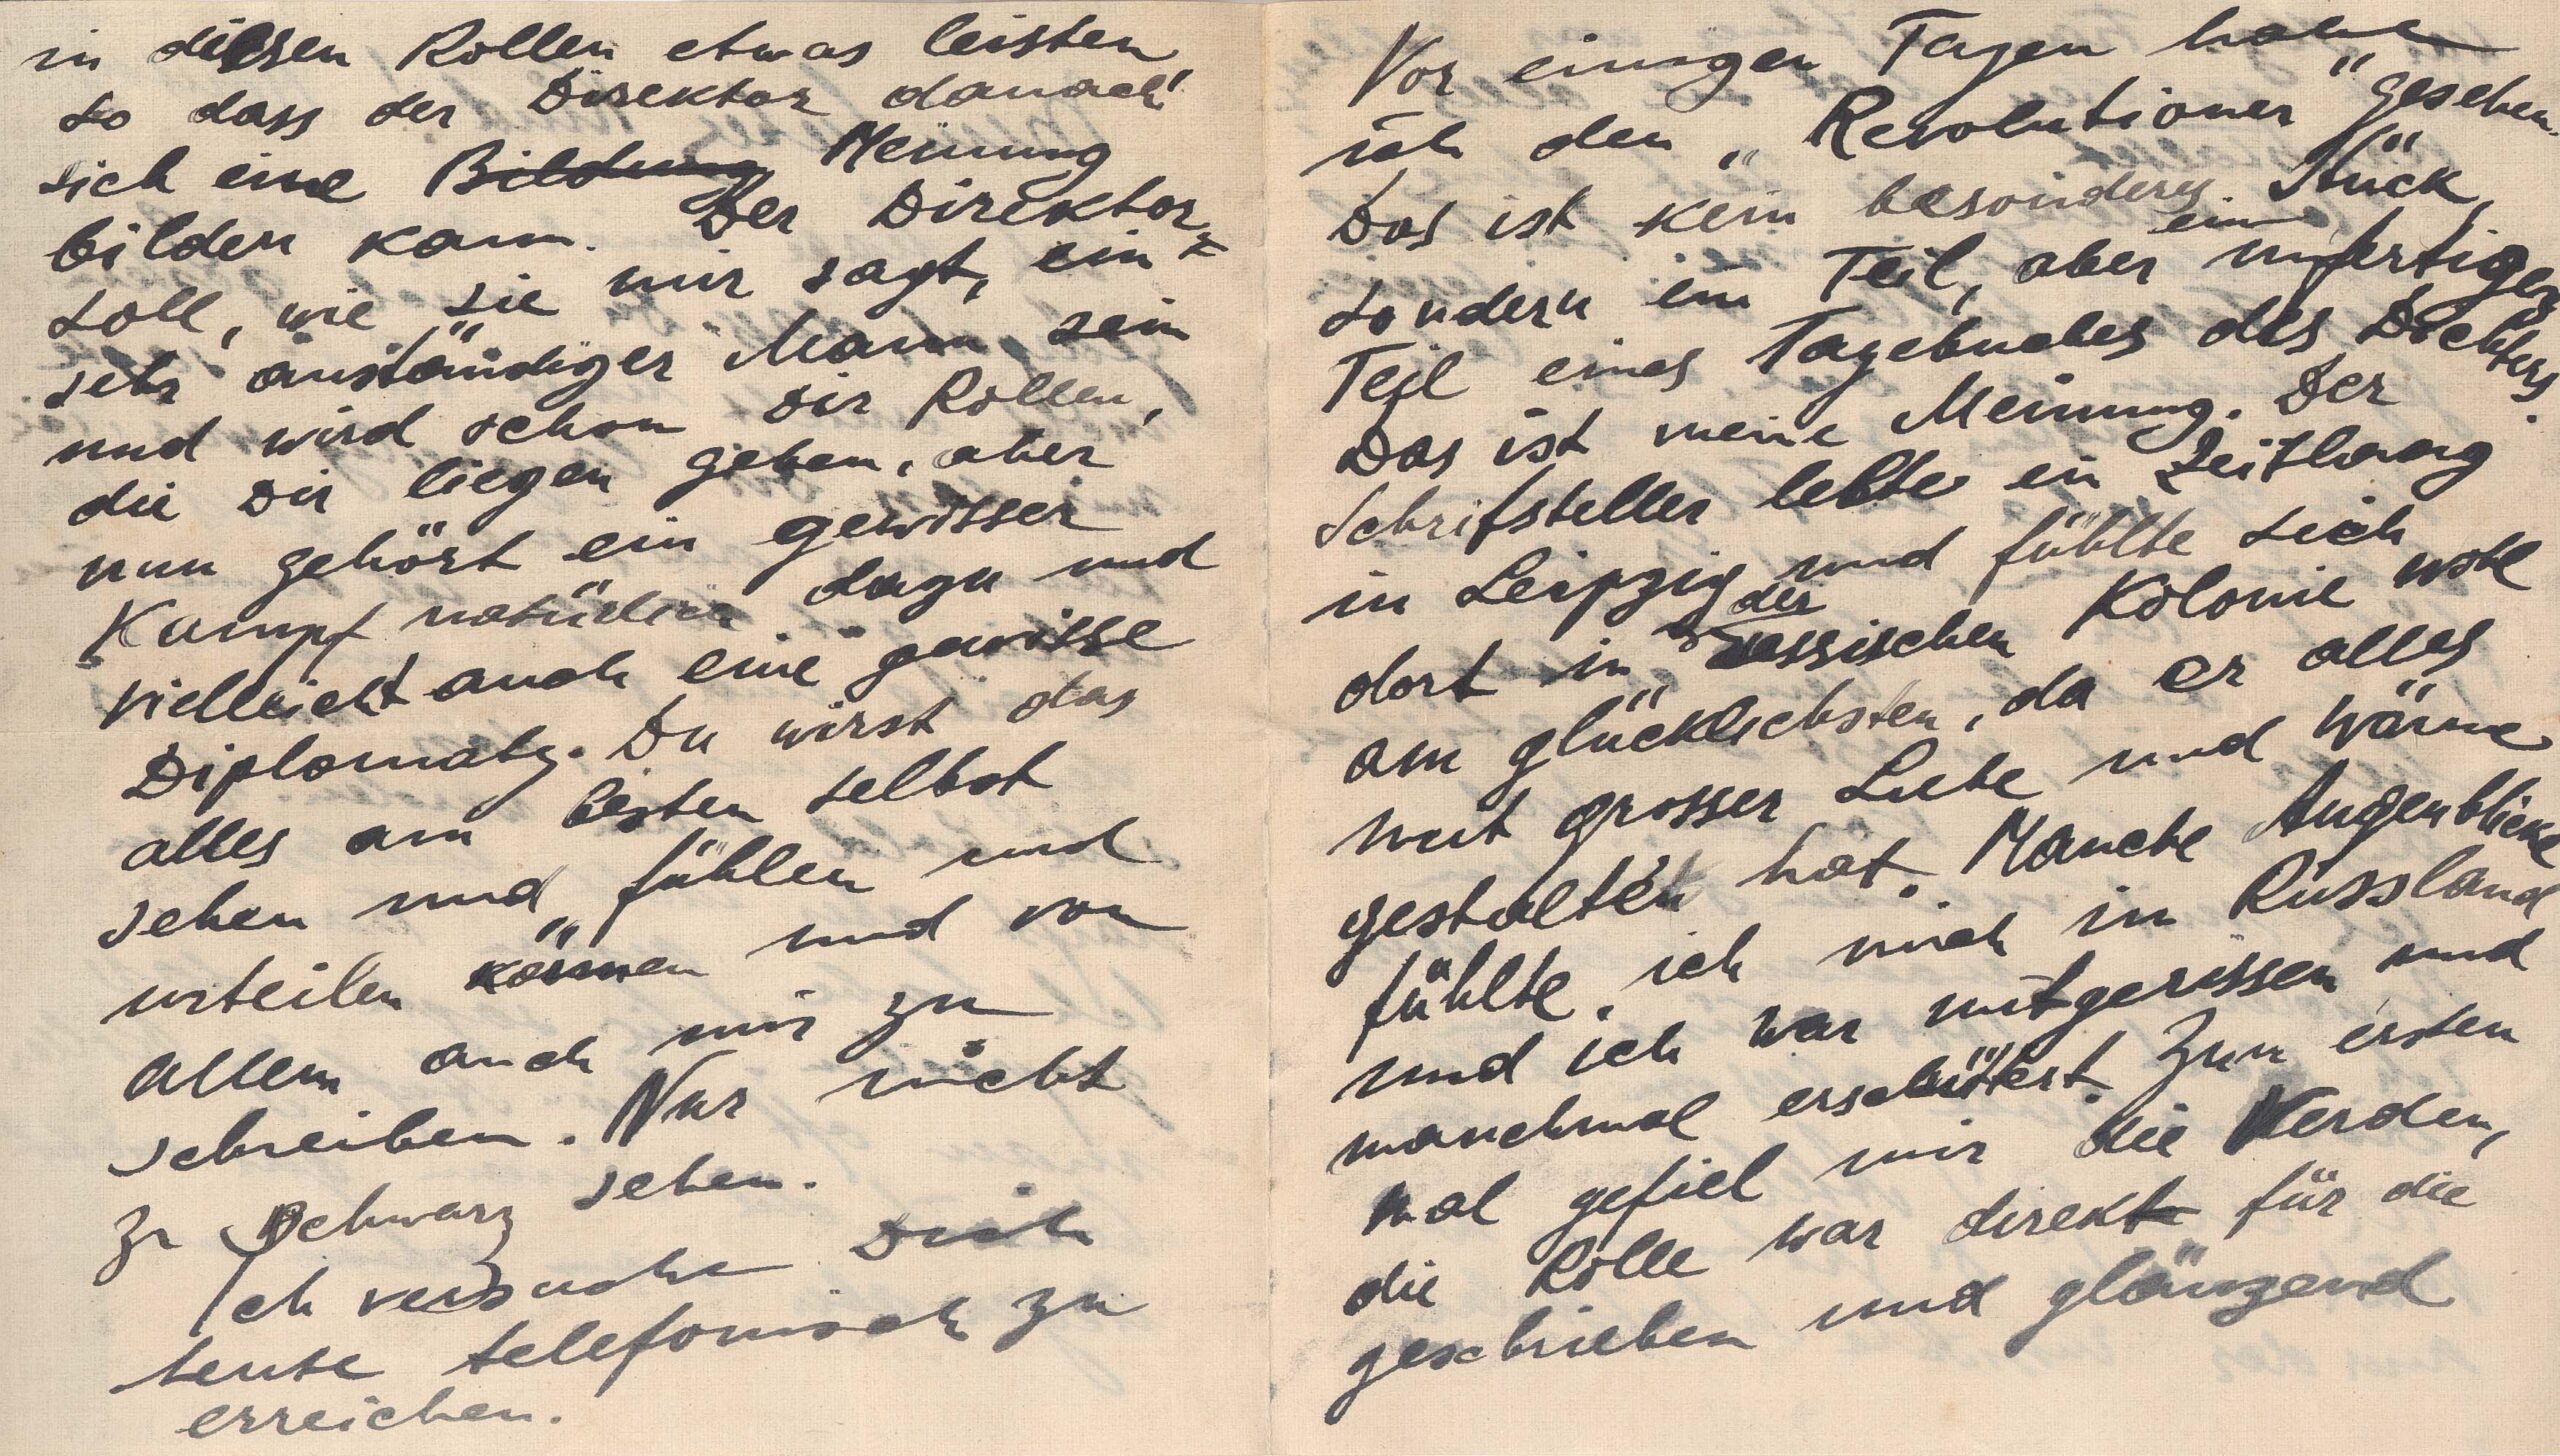 in diesen Rollen etwas leisten
so dass der Direktor danach
sich eine Bildung Meinung
bilden kann. Der Direktor
soll, wie sie mir sagt, ein
sehr anständiger Mann sein
und wird schon Dir Rollen,
die Dir liegen geben, aber
nun gehört ein gewisser
Kampf natürlich dazu und
vielleicht auch eine gewisse
Diplomatz. Du wirst das
alles am besten selbst
sehen und fühlen und
urteilen können und vor
allem auch mir zu
schreiben. Nur nicht
zu schwarz sehen.
Ich versuche Dich
heute telefonisch zu
erreichen.
Vor einigen Tagen habe
ich den „Revolutioner" gesehen.
Das ist kein besonderes Stück,
sondern ein Teil, aber ein unfertiger
Teil eines Tagebuches des Dichters.
Das ist meine Meinung. Der
Schrifsteller lebte ein Zeitlang
in Leipzig und fühlte sich
dort in der russischen Kolonie wohl
am glücklichsten, da er alles
mit grosser Liebe und Wärme
gestalten hat. Manche Augenblicke
fühlte ich mich in Russland
und ich war mitgerissen und
manchmal erschüttert. Zum ersten
mal gefiel mir die Werden,
die Rolle war direkt für die
geschrieben und glänzend